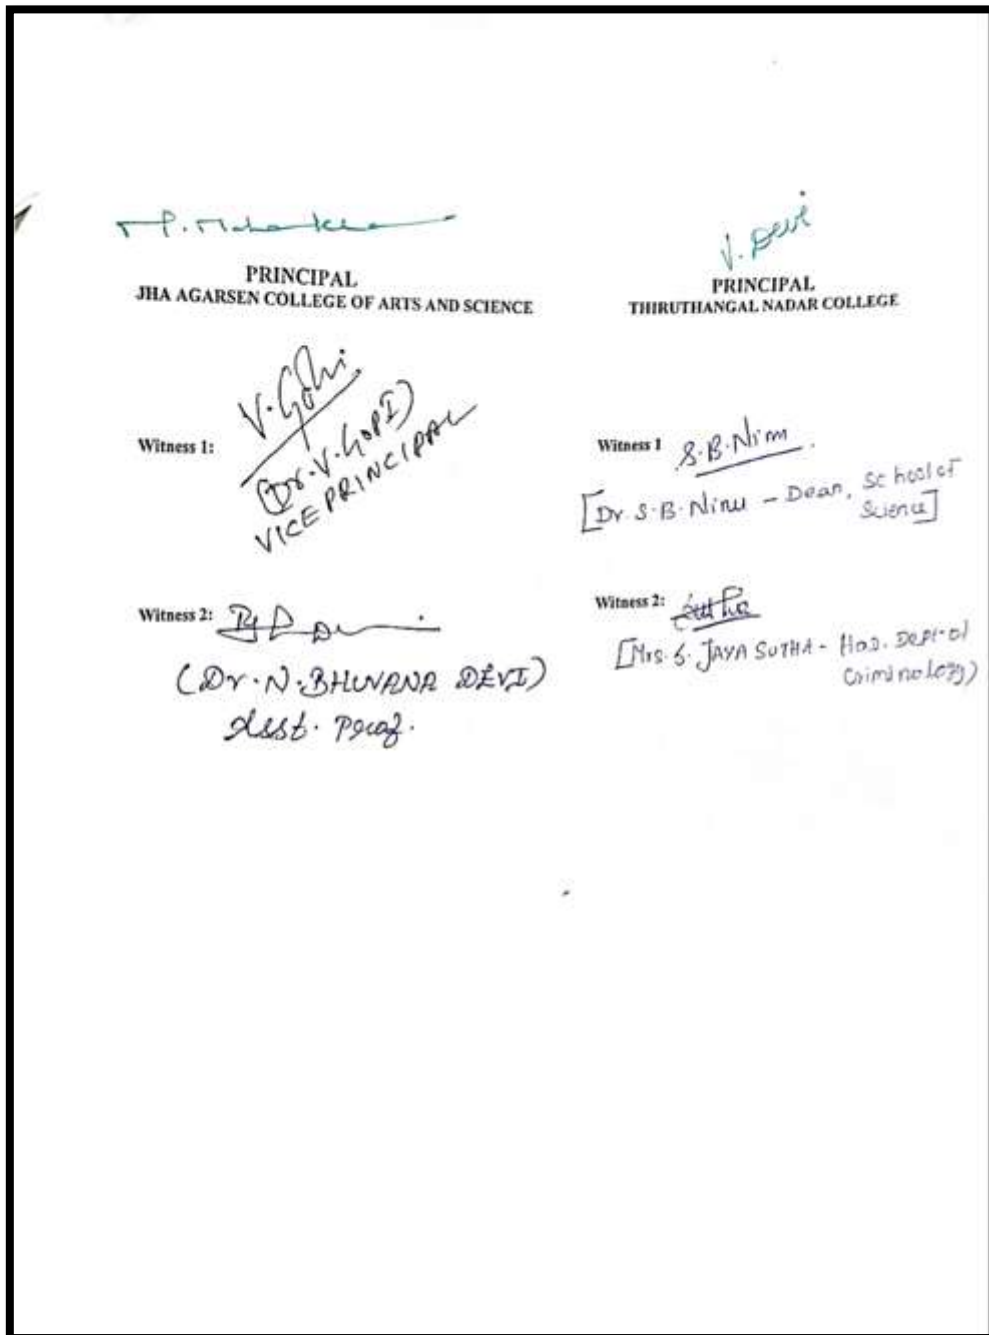 PRINCIPAL
JHA AGARSEN COLLEGE OF ARTS AND SCIENCE
V. Gopi
Witness 1:
(Dr. V. GOPI)
VICE PRINCIPAL
Witness 2:
(Dr. N. BHUVANA DEVI)
Asst. Prof.
V. Devi
PRINCIPAL
THIRUTHANGAL NADAR COLLEGE
Witness 1 S.B. Niru
[Dr. S. B. Niru - Dean, School of
Science]
Witness 2:
[Mrs. S. JAYA SUTHA - HOD. Dept of
Criminology)